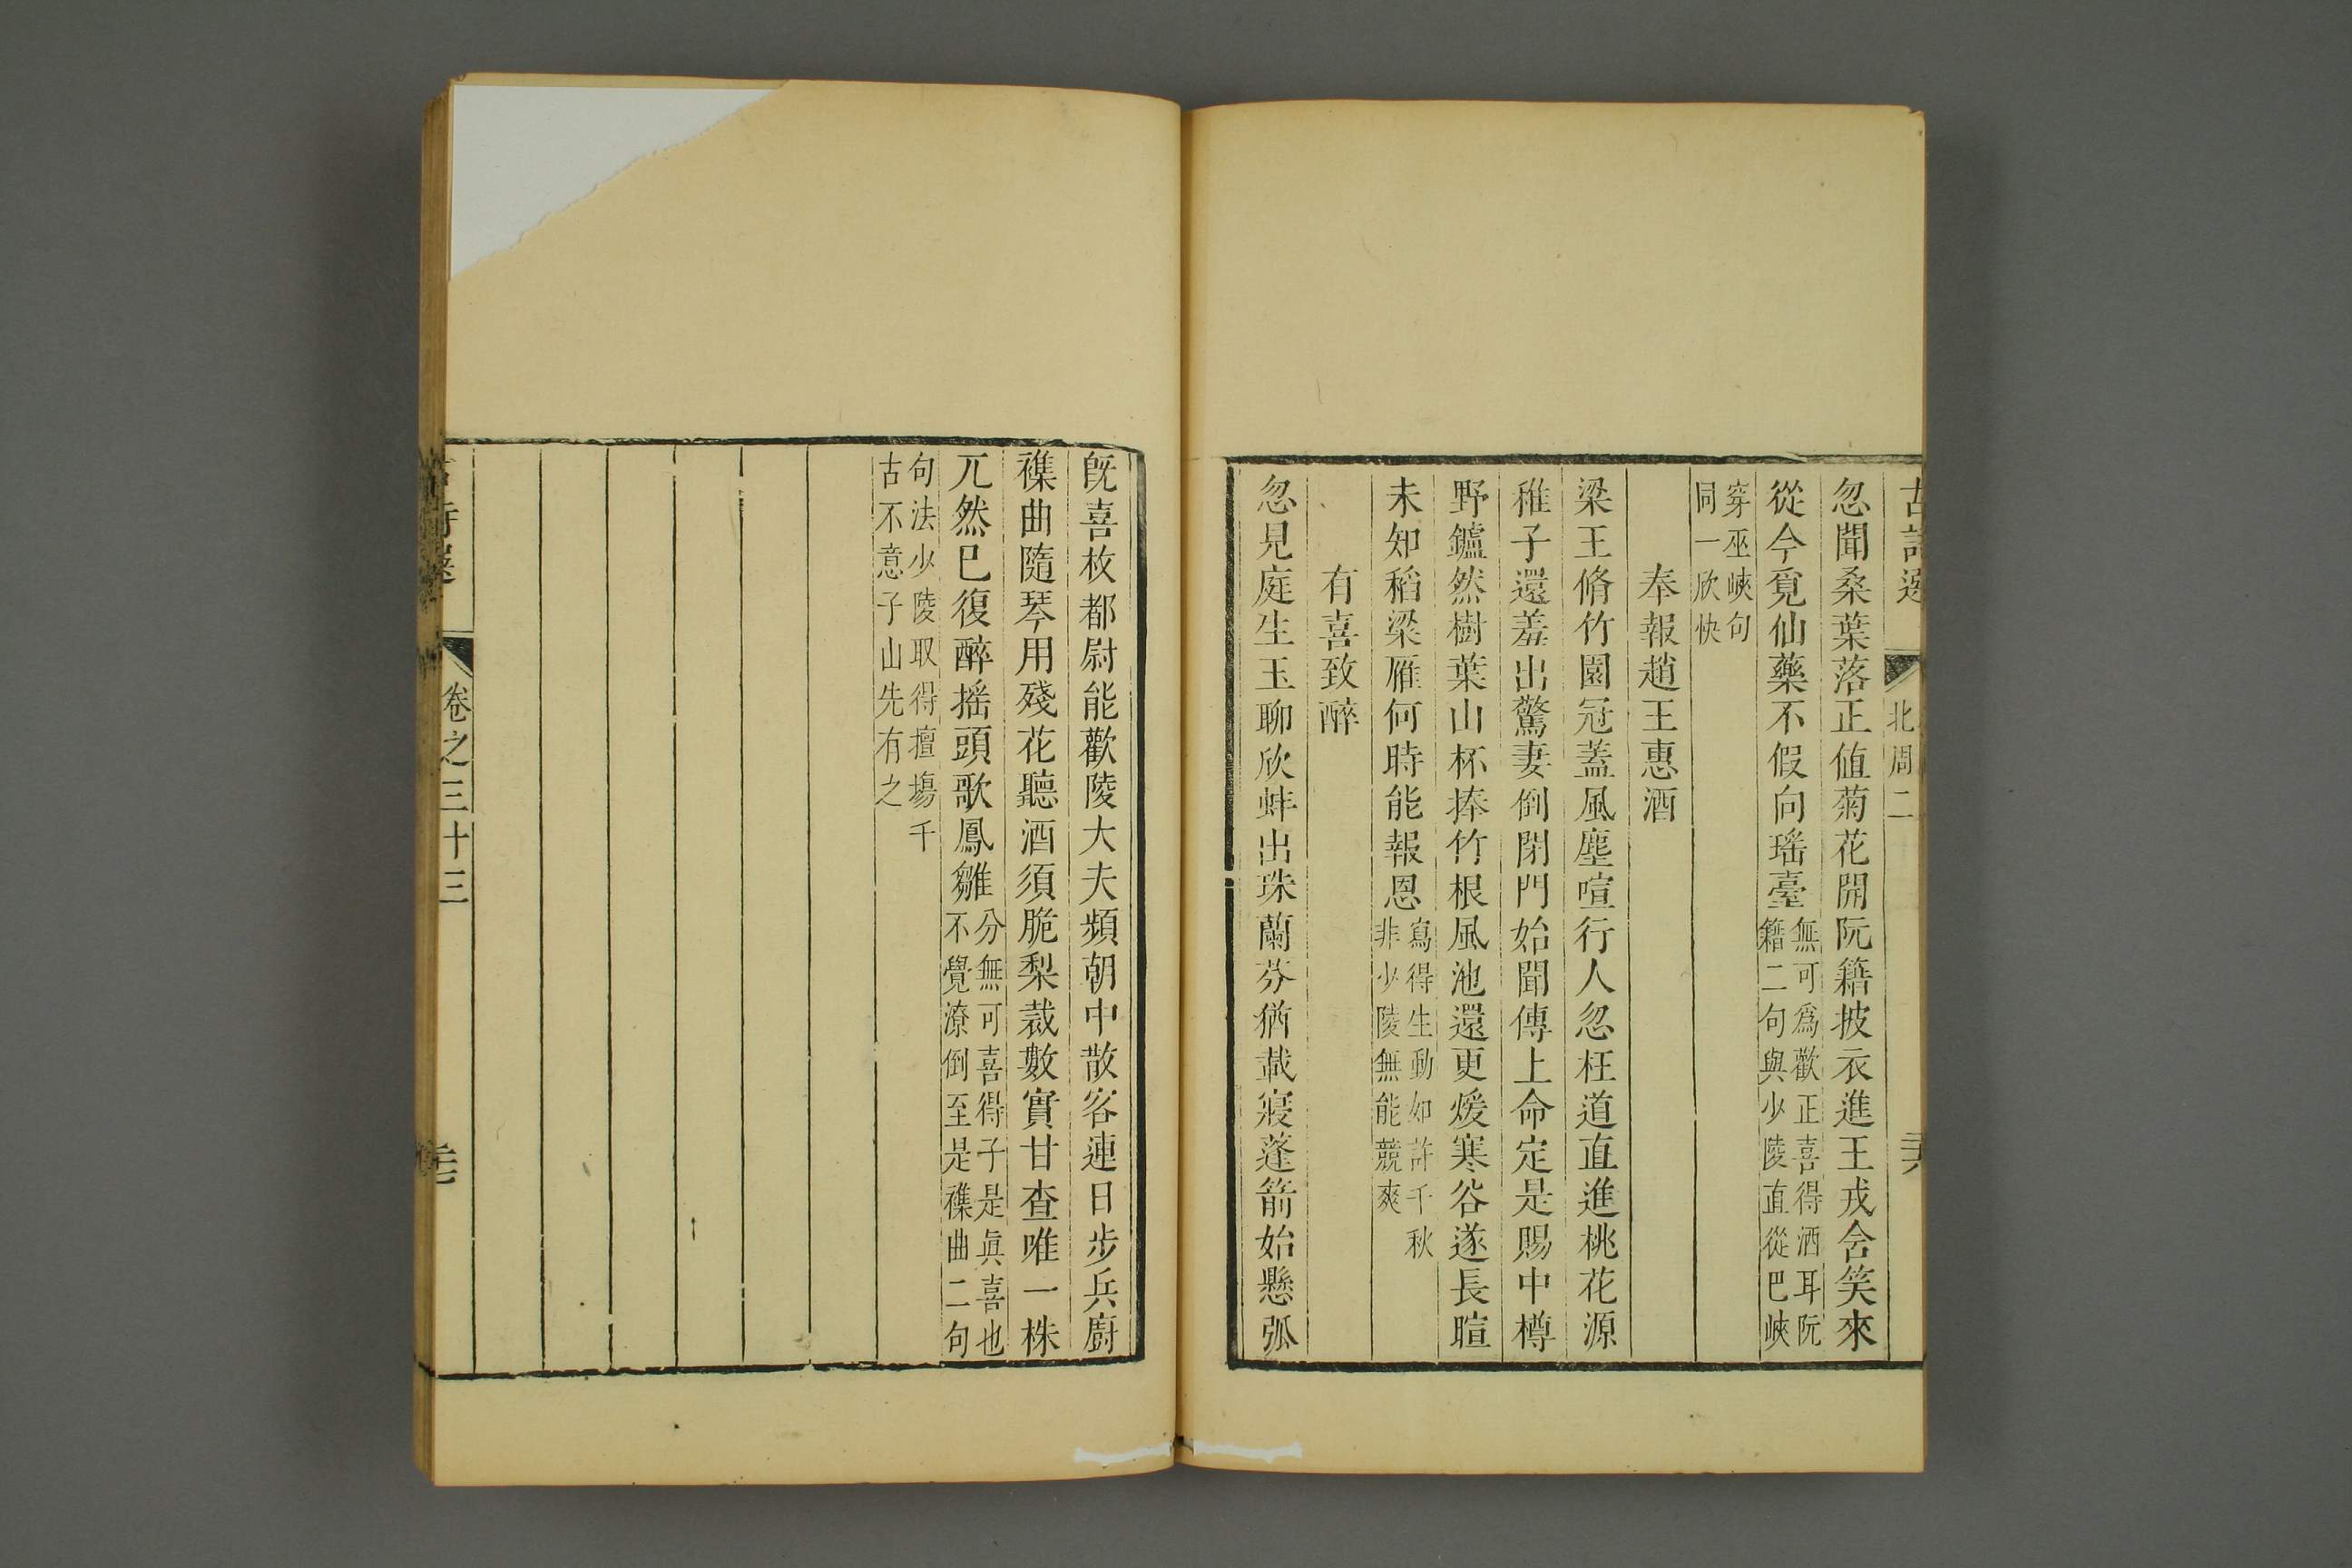 古詩選 北周二 三六
忽聞桑葉落正值菊花開阮籍披衣進王戎含笑來
從今覓仙藥不假向瑤臺無可爲歡正喜得酒耳阮
籍二句與少陵直從巴峽
穿巫峽句
同一欣快
奉報趙王惠酒
梁王脩竹園冠蓋風塵喧行人忽枉道直進桃花源
稚子還羞出驚妻倒閉門始聞傳上命定是賜中樽
野鑪然樹葉山杯捧竹根風池還更煖寒谷遂長暄
未知稻粱雁何時能報恩寫得生動如許千秋
非少陵無能競爽
有喜致醉
忽見庭生玉聊欣蚌出珠蘭芬猶載寢蓬箭始懸弧
既喜枚都尉能歡陵大夫頻朝中散客連日步兵廚
襍曲隨琴用殘花聽酒須脆梨裁數實甘查唯一株
兀然已復醉摇頭歌鳳雛分無可喜得子是眞喜也
不覺潦倒至是襍曲二句
句法少陵取得擅塲千
古不意子山先有之
卷之三十三